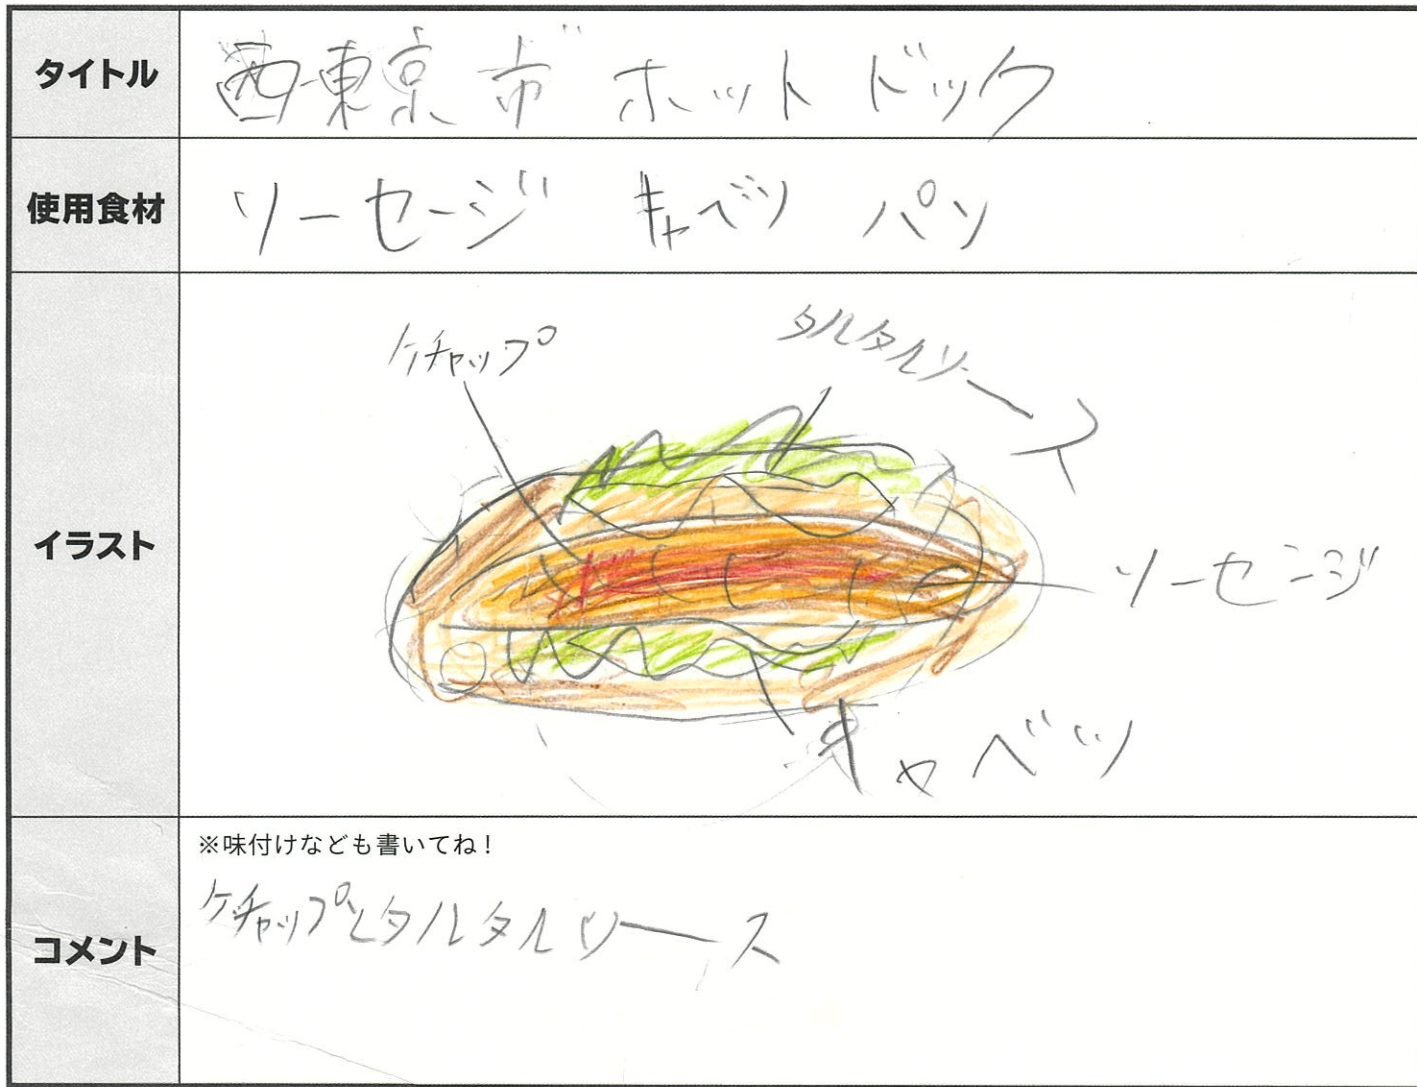 タイトル
西東京市ホットドック
使用食材
ソーセージ キャベツ パン
イラスト
ケチャップ
タルタルソース
ソーセージ
キャベツ
コメント
※味付けなども書いてね！
ケチャップとタルタルソース